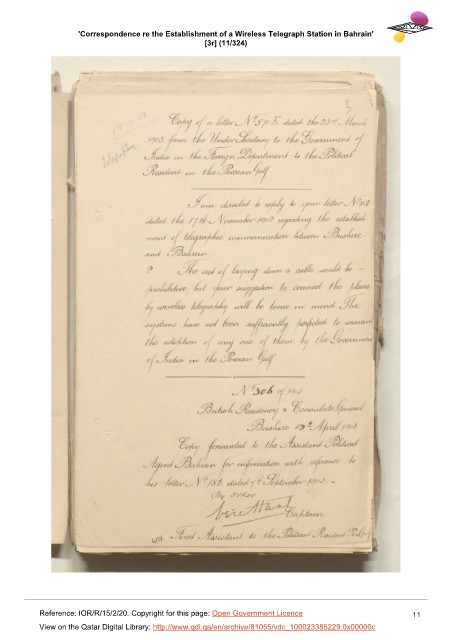 'Correspondence re the Establishment of a Wireless Telegraph Station in Bahrain'
[3r] (11/324)
3
Telegraphy
Copy of a letter No 570 E dated the 23rd March
1903 from the Under Secretary to the Government of
India in the Foreign Department to the Political
Resident in the Persian Gulf
I am directed to reply to your letter No
dated the 17th November 1902 regarding the establish
ment of telegraphic communication between Bushire
and Bahrein
2 The cost of laying down a cable would be
prohibitive, but your suggestion to connect the places
by wireless telegraphy will be borne in mind The
systems have not been sufficiently perfected to warrant
the adoption of any one of them by the Government
of India in the Persian Gulf
No 306 of 1903
British Residency & Consulate General
Bushire 13th April 1903
Copy forwarded to the Assistant Political
Agent Bahrein for information with reference to
his letter No dated 7th September 1903. -
By order
Captain
First Assistant to the Political Resident
Reference: IOR/R/15/2/20. Copyright for this page: Open Government Licence
11
View on the Qatar Digital Library: http://www.qdl.qa/en/archive/81055/vdc_100023385229.0x00000c